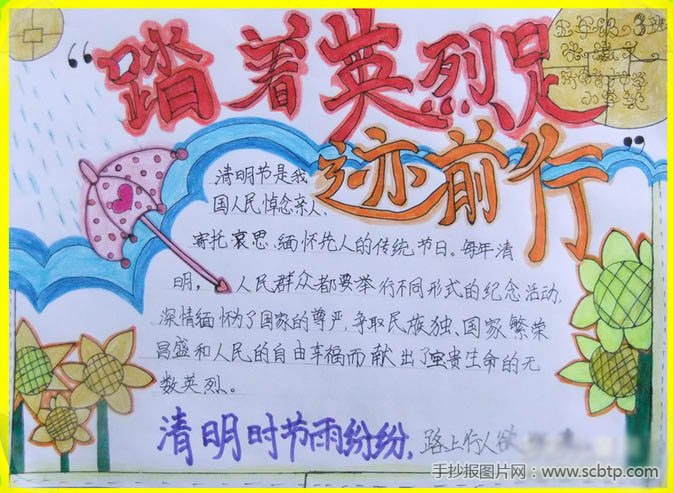 “踏着英烈足
迹前行”
清明节是我
国人民悼念亲人、
寄托哀思、缅怀先人的传统节日。每年清
明，人民群众都要举行不同形式的纪念活动，
深情缅怀为了国家的尊严，争取民族独、国家繁荣
昌盛和人民的自由幸福而献出了宝贵生命的无
数英烈。
清明时节雨纷纷，路上行人欲
手抄报图片网：www.scbtp.com